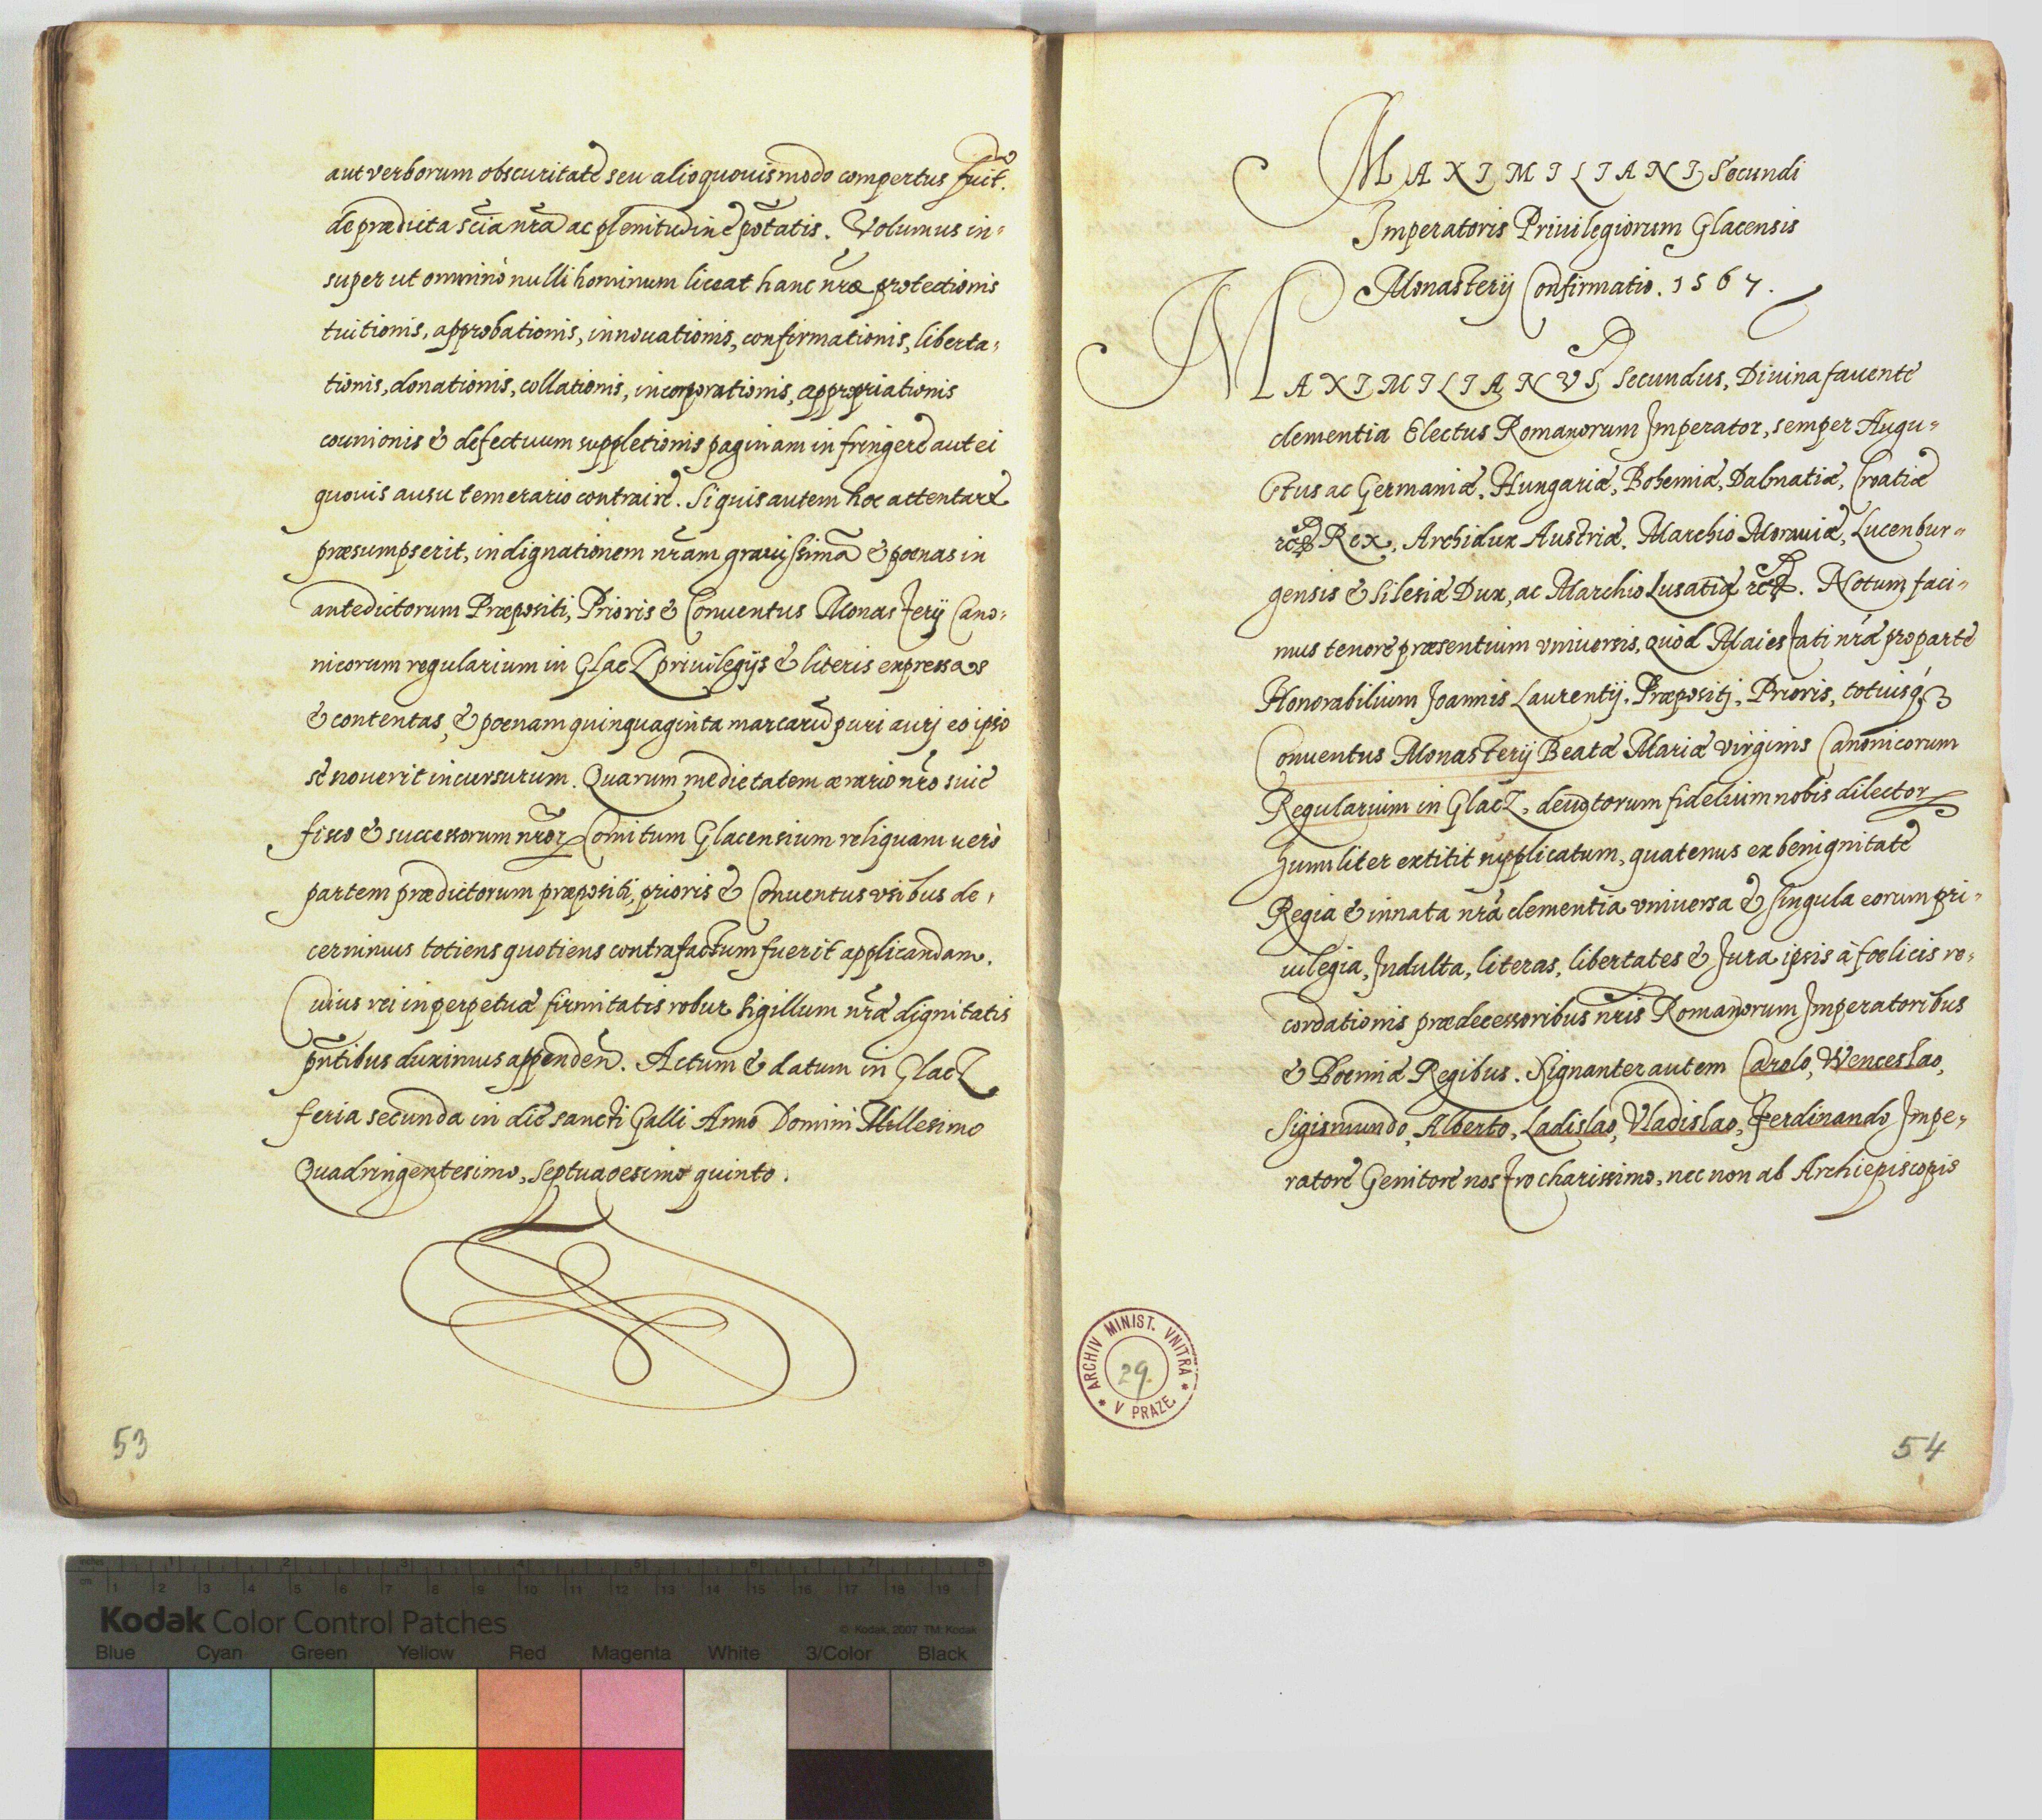 aut verborum obscuritate seu alio quouis modo compertus fuit.
de prædicta scia nra ac plenitudine ptatis. Volumus in-
super ut omnino nulli hominum liceat hanc nræ protectionis
tuitionis, approbationis, innouationis, confirmationis, liberta-
tionis, donationis, collationis, incorporationis, appropriationis
counionis & defectuum suppletionis paginam infringere aut ei
quouis ausu temerario contraire. Siquis autem hoc attentare
præsumpserit, indignationem nram grauissimã & pœnas in
antedictorum Præpositi, Prioris & Conuentus Monasterij Cano-
nicorum regularium in Glacz priuilegijs & literis expressas
& contentas, & pœnam quinquaginta marcarũ puri aurj eo ipso
se nouerit incursurum. Quarum medietatem ærario nro siue
fisco & successorum nror Comitum Glacensium reliquam uerò
partem prædictorum præpositi, prioris & Conuentus vsibus de-
cernimus totiens quotiens contrafactum fuerit applicandam.
Cuius rei in perpetuæ firmitatis robur Sigillum nræ dignitatis
pntibus duximus appenden. Actum & datum in Glacz
feria secunda in die sancti Galli Anno Domini Millesimo
Quadringentesimo, Septuagesimo quinto.
53
MAXIMILIANI Secundi
Imperatoris Priuilegiorum Glacensis
Monasterij Confirmatio. 1567.
MAXIMILIANVS Secundus, Diuina fauente
clementia Electus Romanorum Imperator, semper Augu-
stus ac Germaniæ, Hungariæ, Bohemiæ, Dalmatiæ, Croatiæ
rc Rex, Archidux Austriæ, Marchio Morauiæ, Lucenbur-
gensis & Silesiæ Dux, ac Marchio Lusatiæ rc. Notum faci-
mus tenore præsentium vniuersis, quòd Maiestati nræ pro parte
Honorabilium Joannis Laurentij. Præpositj, Prioris, totiusq3
Conuentus Monasterij Beatæ Mariæ virginis Canonicorum
Regularium in Glacz, deuotorum fidelium nobis dilector
humiliter extitit supplicatum, quatenus ex benignitate
Regia & innata nra clementia vniuersa & singula eorum pri-
uilegia, Indulta, literas, libertates & Jura ipsis à fœlicis re-
cordationis prædecessoribus nris Romanorum Imperatoribus
& Boemiæ Regibus. Signanter autem Carolo, Wenceslao,
Sigismundo, Alberto, Ladislao, Vladislao, Ferdinando Impe-
ratore Genitore nostro charissimo, nec non ab Archiepiscopis
ARCHIV MINIST. VNITRA
V PRAZE
29.
54
Kodak Color Control Patches
© Kodak, 2007 TM: Kodak
Blue Cyan Green Yellow Red Magenta White 3/Color Black